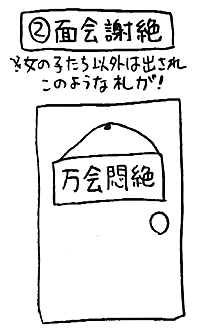 ②面会謝絶
※女の子たち以外は出され
このような札が!
万会悶絶